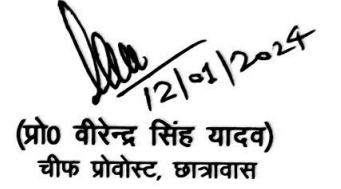 12/01/2024
(प्रो० वीरेन्द्र सिंह यादव)
चीफ प्रोवोस्ट, छात्रावास